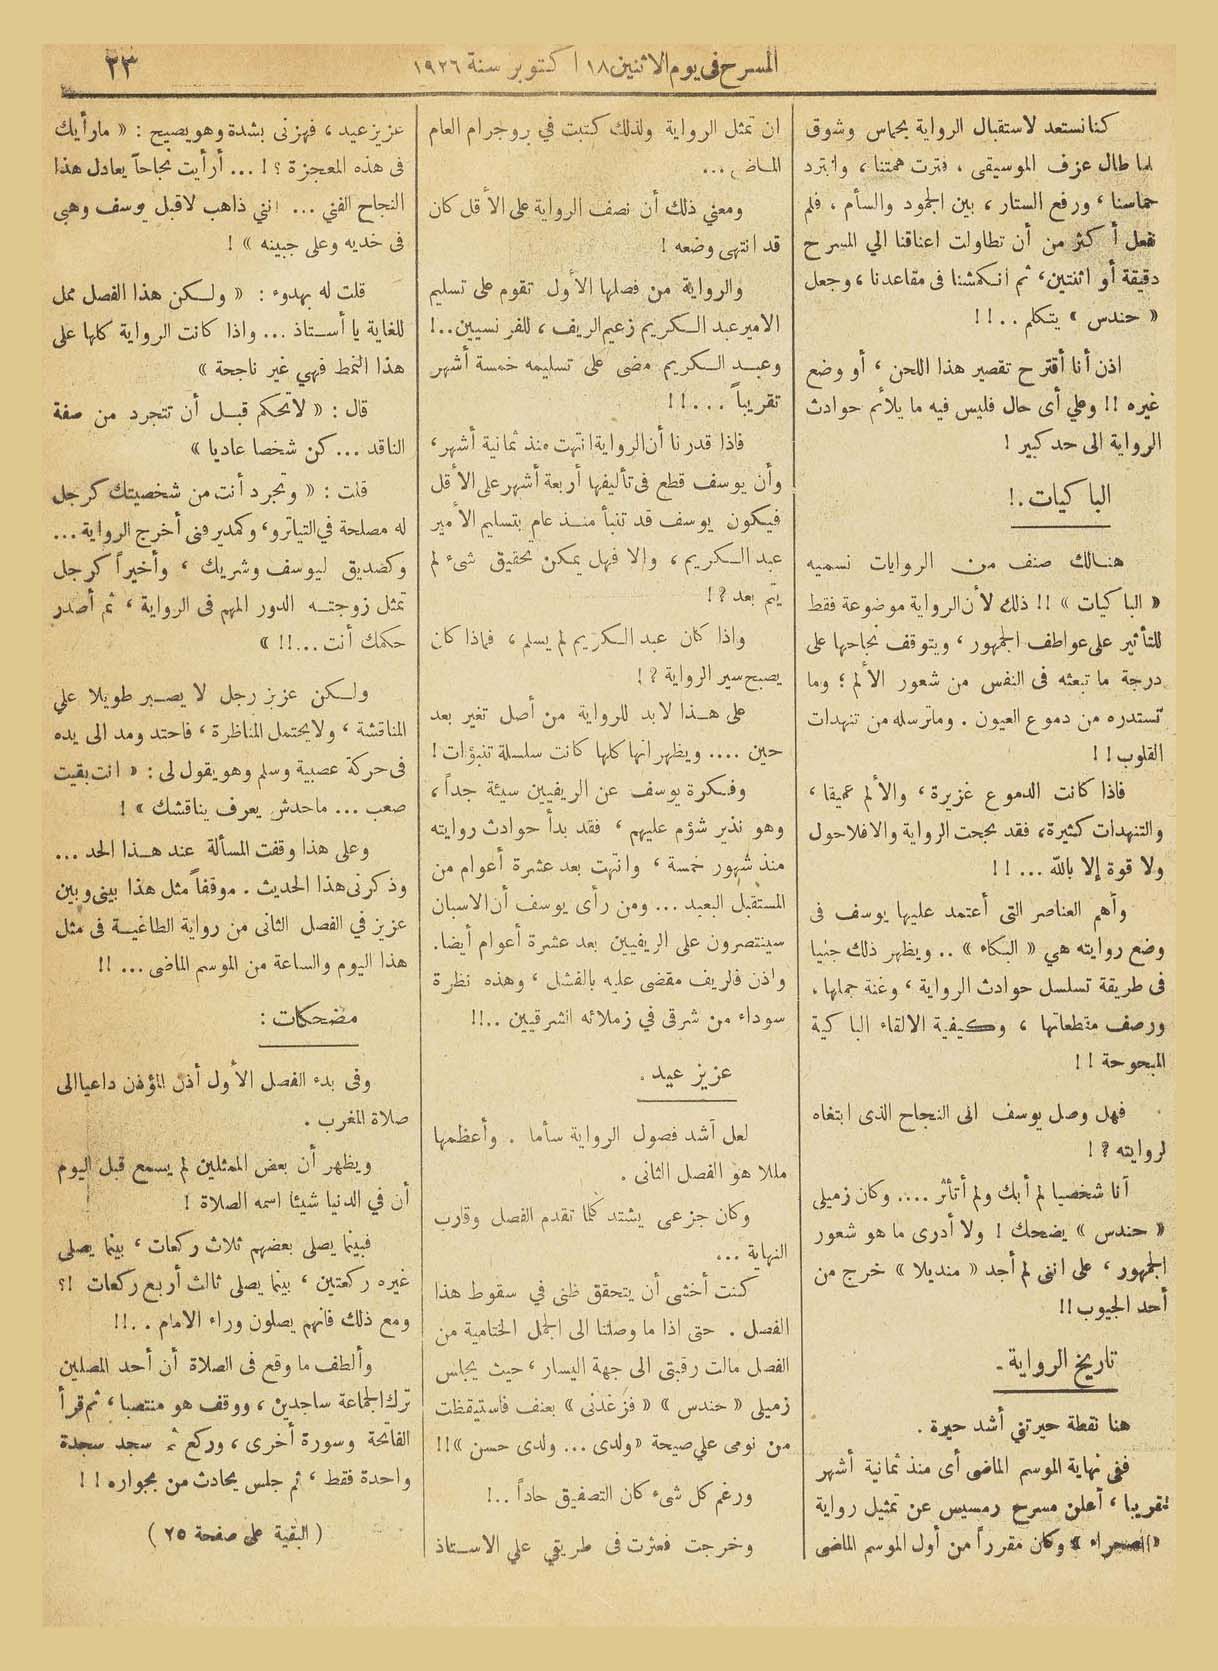 المسرح فى يوم الاثنين ١٨ اكتوبر سنة ١٩٢٦
٢٣
كنا نستعد لاستقبال الرواية بحماس وشوق
لما طال عزف الموسيقى ، فترت همتنا ، وابترد
حماسنا ، ورفع الستار ، بين الجمود والسأم ، فلم
نفعل أكثر من أن تطاولت اعناقنا الي المسرح
دقيقة أو اثنتين ، ثم انكمشنا فى مقاعدنا ، وجعل
« حندس » يتكلم . . ! !
اذن أنا أقترح تقصير هذا اللحن ، أو وضع
غيره !! وعلي أى حال فليس فيه ما يلائم حوادث
الرواية الى حد كبير !
الباكيات . !
هنالك صنف من الروايات نسميه
« الباكيات » !! ذلك لأن الرواية موضوعة فقط
للتأثير على عواطف الجمهور ، ويتوقف نجاحها على
درجة ما تبعثه فى النفس من شعور الألم ؛ وما
تستدره من دموع العيون . وماترسله من تنهدات
القلوب ! !
فاذا كانت الدموع غزيرة ، والألم عميقا ،
والتنهدات كثيرة، فقد نجحت الرواية والافلاحول
ولا قوة إلا بالله ... ! !
وأهم العناصر التى أعتمد عليها يوسف فى
وضع روايته هي « البكاء » .. ويظهر ذلك جليا
فى طريقة تسلسل حوادث الرواية ، وغنة جملها ،
ورصف مقطعاتها ، وكيفية الالقاء الباكية
المبحوحة ! !
فهل وصل يوسف الى النجاح الذى ابتغاه
لروايته ؟ !
أنا شخصيا لم أبك ولم أتأثر .... وكان زميلى
« حندس » يضحك ! ولا أدرى ما هو شعور
الجمهور ، على اننى لم أجد « منديلا » خرج من
أحد الجيوب !!
تاريخ الرواية -
هنا نقطة حيرتني أشد حيرة .
ففى نهاية الموسم الماضى أى منذ ثمانية أشهر
تقريبا ، أعلن مسرح رمسيس عن تمثيل رواية
« الصحراء » وكان مقرراً من أول الموسم الماضى
ان تمثل الرواية ولذلك كتبت في بروجرام العام
الماضى ...
ومعني ذلك أن نصف الرواية على الأقل كان
قد انتهى وضعه !
والرواية من فصلها الأول تقوم على تسليم
الامير عبد الكريم زعيم الريف ، للفرنسيين ..!
وعبد الكريم مضى على تسليمه خمسة أشهر
تقريباً ... ! !
فاذا قدرنا أن الرواية انتهت منذ ثمانية أشهر ،
وأن يوسف قطع فى تأليفها أربعة أشهر على الأقل
فيكون يوسف قد تنبأ منذ عام بتسليم الأمير
عبد الكريم ، والا فهل يمكن تحقيق شىء لم
يتم بعد ؟ !
واذا كان عبد الكريم لم يسلم ، فماذا كان
يصبح سير الرواية ؟ !
على هذا لابد للرواية من أصل تغير بعد
حين .... ويظهر انها كلها كانت سلسلة تنبؤات !
وفكرة يوسف عن الريفيين سيئة جداً ،
وهو نذير شؤم عليهم ، فقد بدأ حوادث روايته
منذ شهور خمسة ، وانتهت بعد عشرة أعوام من
المستقبل البعيد ... ومن رأى يوسف أن الاسبان
سينتصرون على الريفيين بعد عشرة أعوام أيضا .
واذن فالريف مقضى عليه بالفشل ، وهذه نظرة
سوداء من شرقى في زملائه الشرقيين ..!!
عزيز عيد .
لعل أشد فصول الرواية سأما . وأعظمها
مللا هو الفصل الثانى .
وكان جزعى يشتد كلما تقدم الفصل وقارب
النهاية ...
كنت أخشى أن يتحقق ظنى في سقوط هذا
الفصل . حتى اذا ما وصلنا الى الجمل الختامية من
الفصل مالت رقبتى الى جهة اليسار ، حيث يجلس
زميلى « حندس » « فزغدنى » بعنف فاستيقظت
من نومى علي صيحة « ولدى ... ولدى حسن » !!
ورغم كل شىء كان التصفيق حاداً ..!
وخرجت فعثرت فى طريقي علي الاستاذ
عزيز عيد ، فهزنى بشدة وهو يصيح : « مارأيك
فى هذه المعجزة ؟ ! ... أرأيت نجاحاً يعادل هذا
النجاح الفني ... انني ذاهب لاقبل يوسف وهبى
فى خديه وعلى جبينه » !
قلت له بهدوء : « ولكن هذا الفصل ممل
للغاية يا أستاذ ... واذا كانت الرواية كلها على
هذا النمط فهي غير ناجحة »
قال : « لاتحكم قبل أن تتجرد من صفة
الناقد ... كن شخصا عاديا »
قلت : « وتجرد أنت من شخصيتك كرجل
له مصلحة في التياترو ، وكمدير فنى أخرج الرواية ...
وكصديق ليوسف وشريك ، وأخيراً كرجل
تمثل زوجته الدور المهم فى الرواية ، ثم أصدر
حكمك أنت ...!! »
ولكن عزيز رجل لا يصبر طويلا علي
المناقشة ، ولايحتمل المناظرة ، فاحتد ومد الى يده
فى حركة عصبية وسلم وهو يقول لى : « انت بقيت
صعب ... ماحدش يعرف يناقشك » !
وعلى هذا وقفت المسألة عند هذا الحد ...
وذكرنى هذا الحديث . موقفاً مثل هذا بينى وبين
عزيز في الفصل الثانى من رواية الطاغية فى مثل
هذا اليوم والساعة من الموسم الماضى ... !!
مضحكات :
وفى بدء الفصل الأول أذن المؤذن داعيا الى
صلاة المغرب .
ويظهر أن بعض الممثلين لم يسمع قبل اليوم
أن في الدنيا شيئا اسمه الصلاة !
فبينما يصلى بعضهم ثلاث ركعات ، بينما يصلى
غيره ركعتين ، بينما يصلى ثالث أربع ركعات !؟
ومع ذلك فانهم يصلون وراء الامام . . !!
وألطف ما وقع فى الصلاة أن أحد المصلين
ترك الجماعة ساجدين ، ووقف هو منتصبا ، ثم قرأ
الفاتحة وسورة أخرى ، وركع ثم سجد سجدة
واحدة فقط ، ثم جلس يحادث من بجواره ! !
( البقية على صفحة ٢٥ )